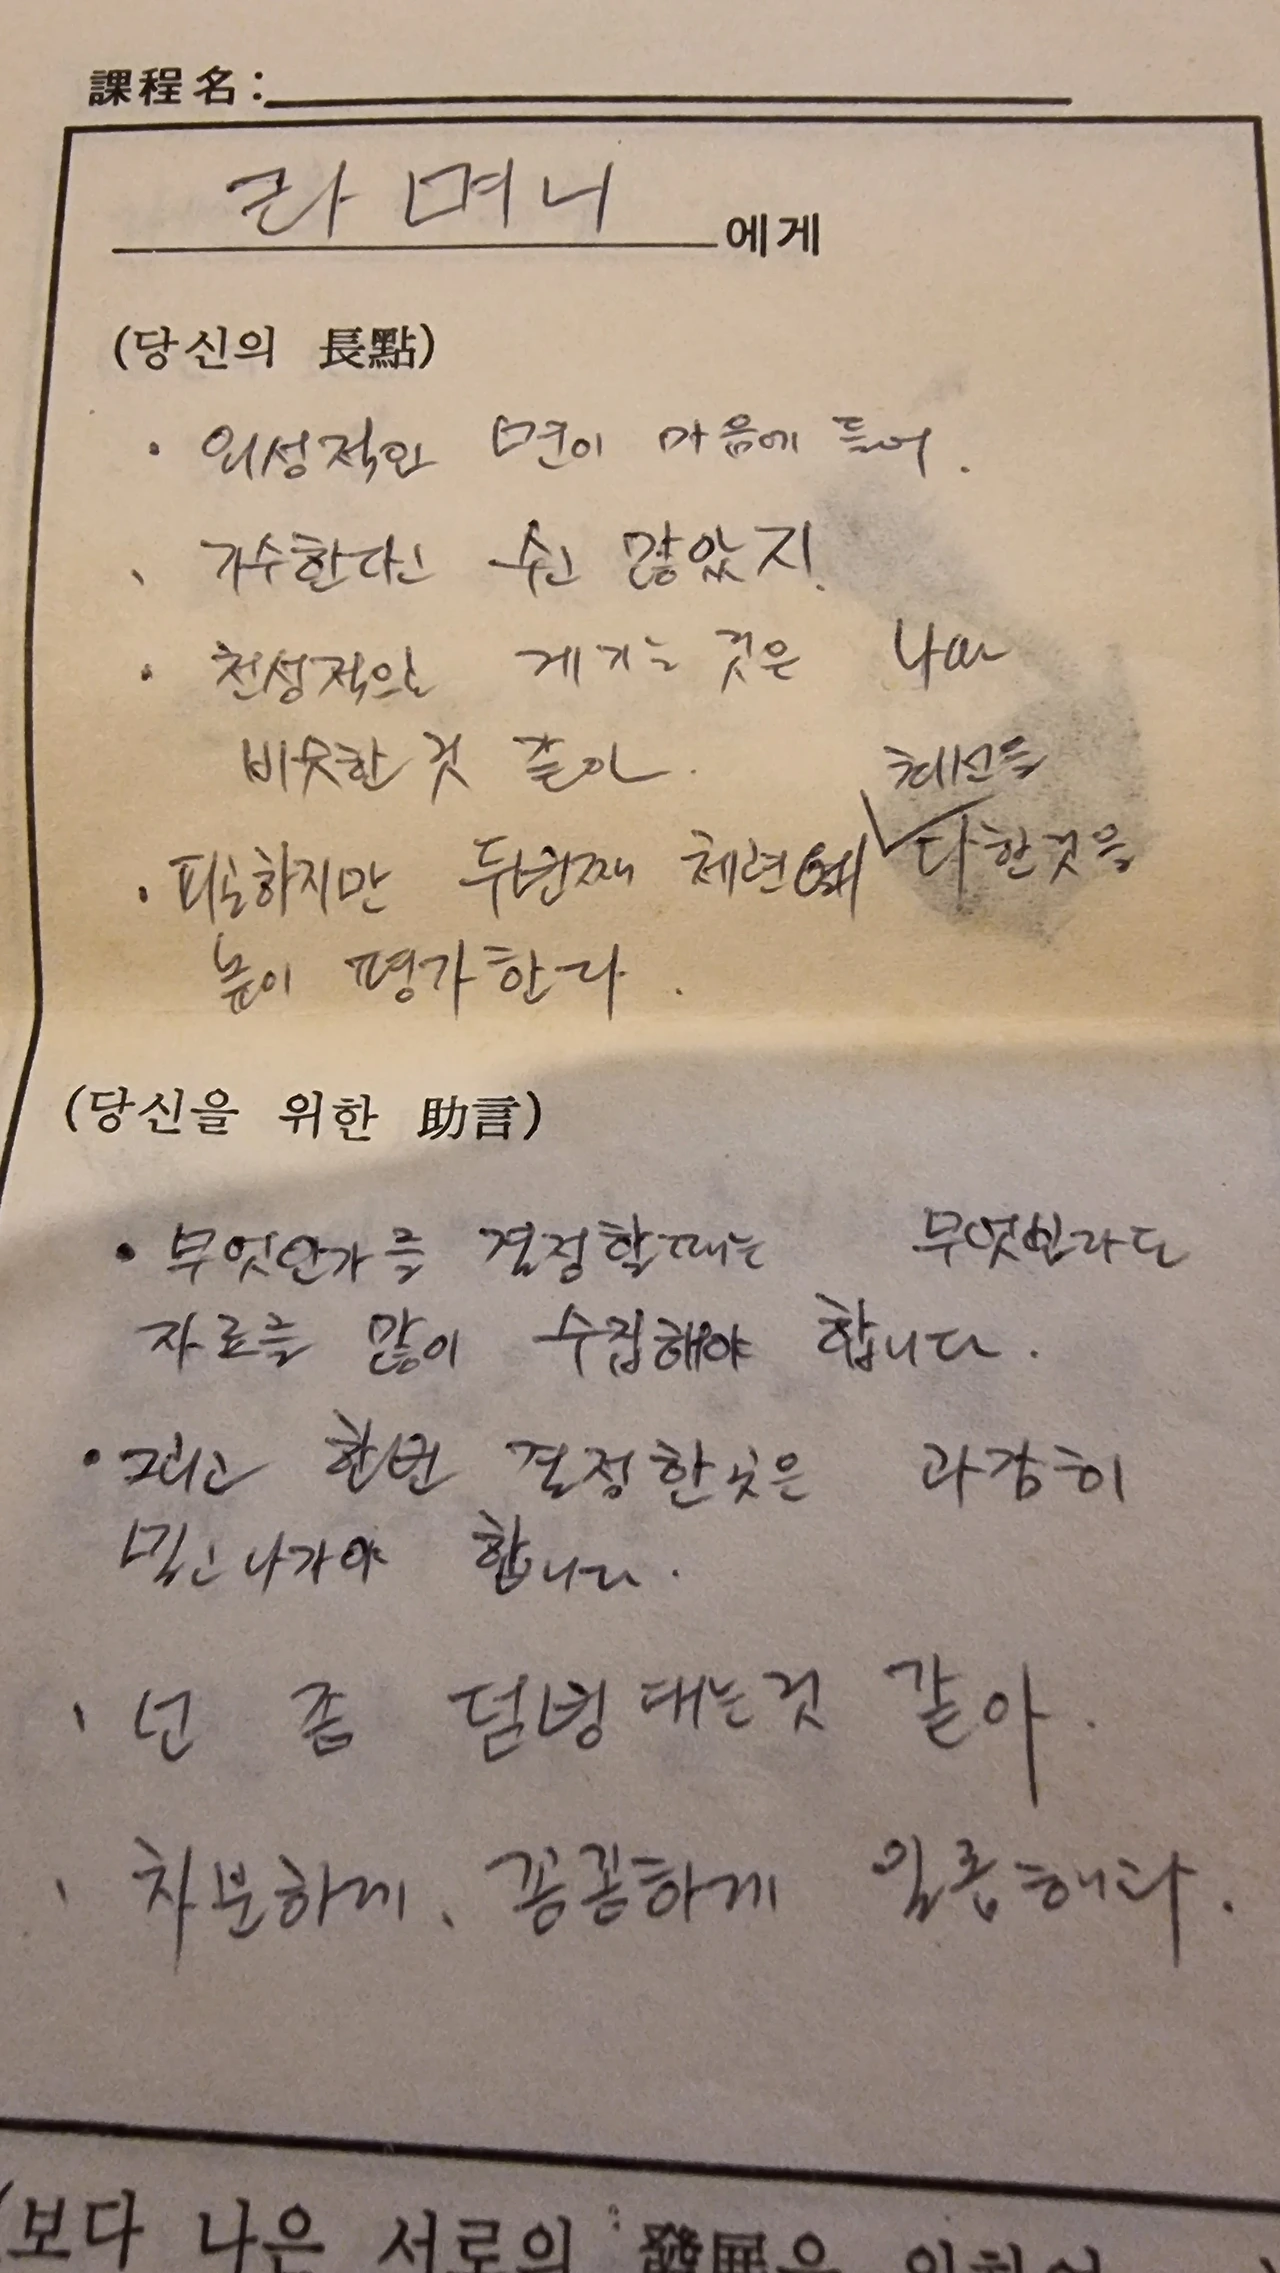 課程名:
라 며 니 에게
(당신의 長點)
· 외성적인 면이 마음에 들어.
、 가수한다고 수고 많았지.
· 천성적인 게기는 것은 나와
비슷한 것 같아.
최선을
· 피곤하지만 두번째 체련에 다한것을
높이 평가한다.
(당신을 위한 助言)
· 무엇인가를 결정할때는 무엇인라도
자료를 많이 수집해야 합니다.
· 그리고 한번 결정한것은 과감히
밀고나가야 합니다.
、 넌 좀 덤벙대는것 같아.
、 차분하게、꼼꼼하게 일좀해라.
(보다 나은 서로의 發展을 위하여